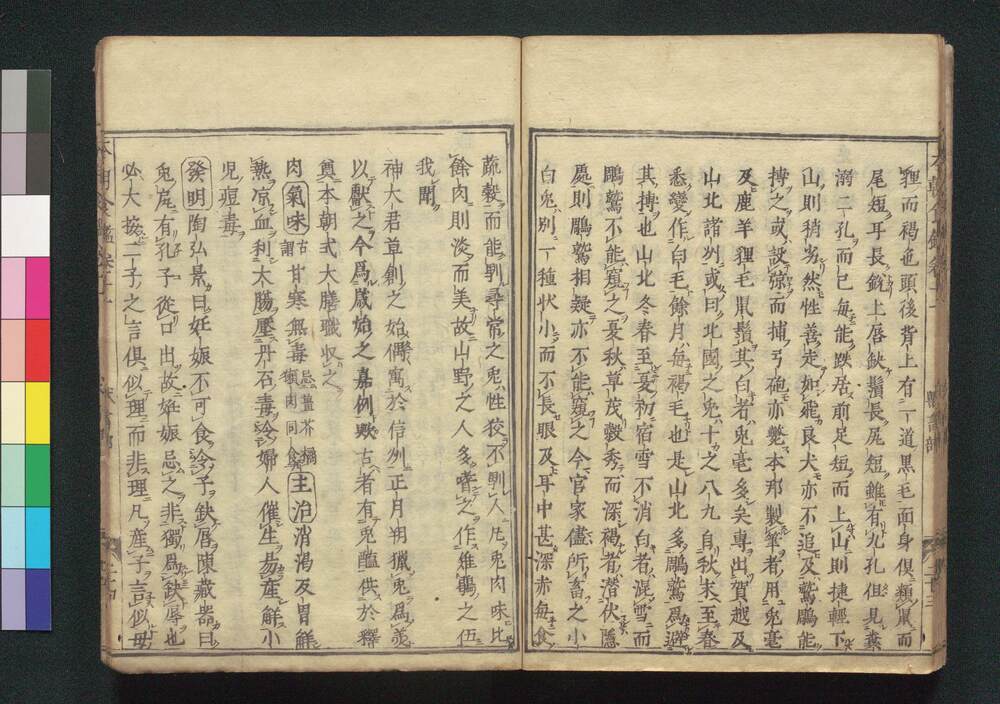 狸而褐色頭後背上有一道黒毛面身倶類鼠而
尾短耳長鋭上唇缺鬚長尻短雖有九孔但見糞
溺二孔而已毎能跌居前足短而上山則捷輕下
山則稍劣然性善走如飛良犬亦不追及鷲鵰能
搏之或設弶而捕弓砲亦斃本邦製筆者用兎毫
及鹿羊狸毛鼠鬚其白者兎毫多矣専出賀越及
山北諸州或曰北國之兎十之八九自秋末至春
悉變作白毛餘月毎褐毛也是山北多鵰鷲爲避
其搏也山北冬春至夏初宿雪不消白者混雪而
鵰鷲不能窺之夏秋草茂穀秀而深褐者潜伏隱
處則鵰鷲相疑亦不能窺之今官家儘所畜之小
白兎別一種状小而不長眼及耳中甚深赤毎食
蔬穀而能馴尋常之兎性狡不馴人凡兎肉味比
餘肉則淡而美故山野之人多嗜之作雉鶴之伍
我聞
神大君草創之始偶寓於信州正月朔獵兎爲羹
以獻之今爲歳始之嘉例歟古者有兎醢供於釋
奠本朝式大膳職収之
肉氣味甘寒無毒主治消渇及胃鮮
熱凉血利大腸壓丹石毒令婦人催生易産鮮小
児痘毒
發明陶弘景曰妊娠不可食令子缺唇陳藏器曰
兎尻有孔子從口出故妊娠忌之非獨爲缺唇也
必大按二子之言倶似理而非理凡産子言似母